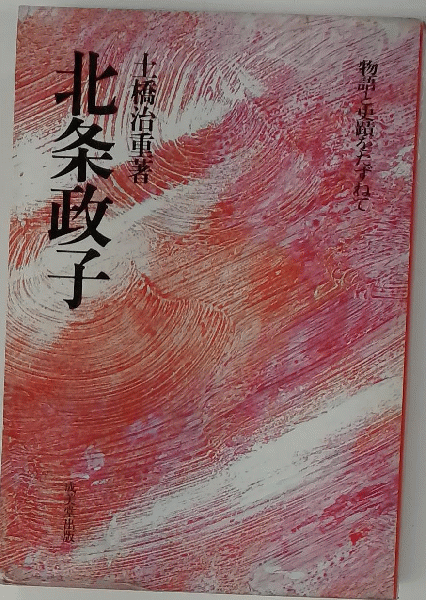 物語と史蹟をたずねて
土橋治重著
北条政子
成美堂出版